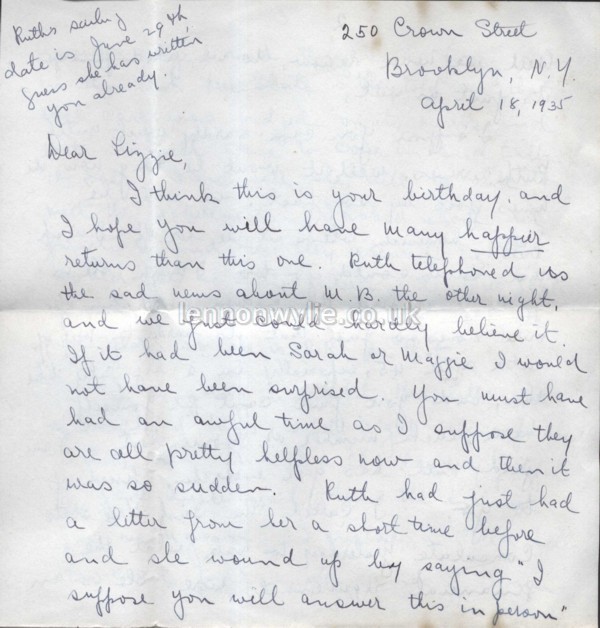 Ruth's sailing
date is June 29th,
guess she has written
you already.
250 Crown Street
Brooklyn, N.Y.
April 18, 1935
Dear Lizzie,
I think this is your birthday, and
I hope you will have many happier
returns than this one. Ruth telephoned us
the sad news about M.B. the other night,
and we just could hardly believe it.
lennonwylie.co.uk
If it had been Sarah or Maggie I would
not have been surprised. You must have
had an awful time as I suppose they
are all pretty helpless now and then it
was so sudden. Ruth had just had
a letter from her a short time before
and she wound up by saying "I
suppose you will answer this in person"